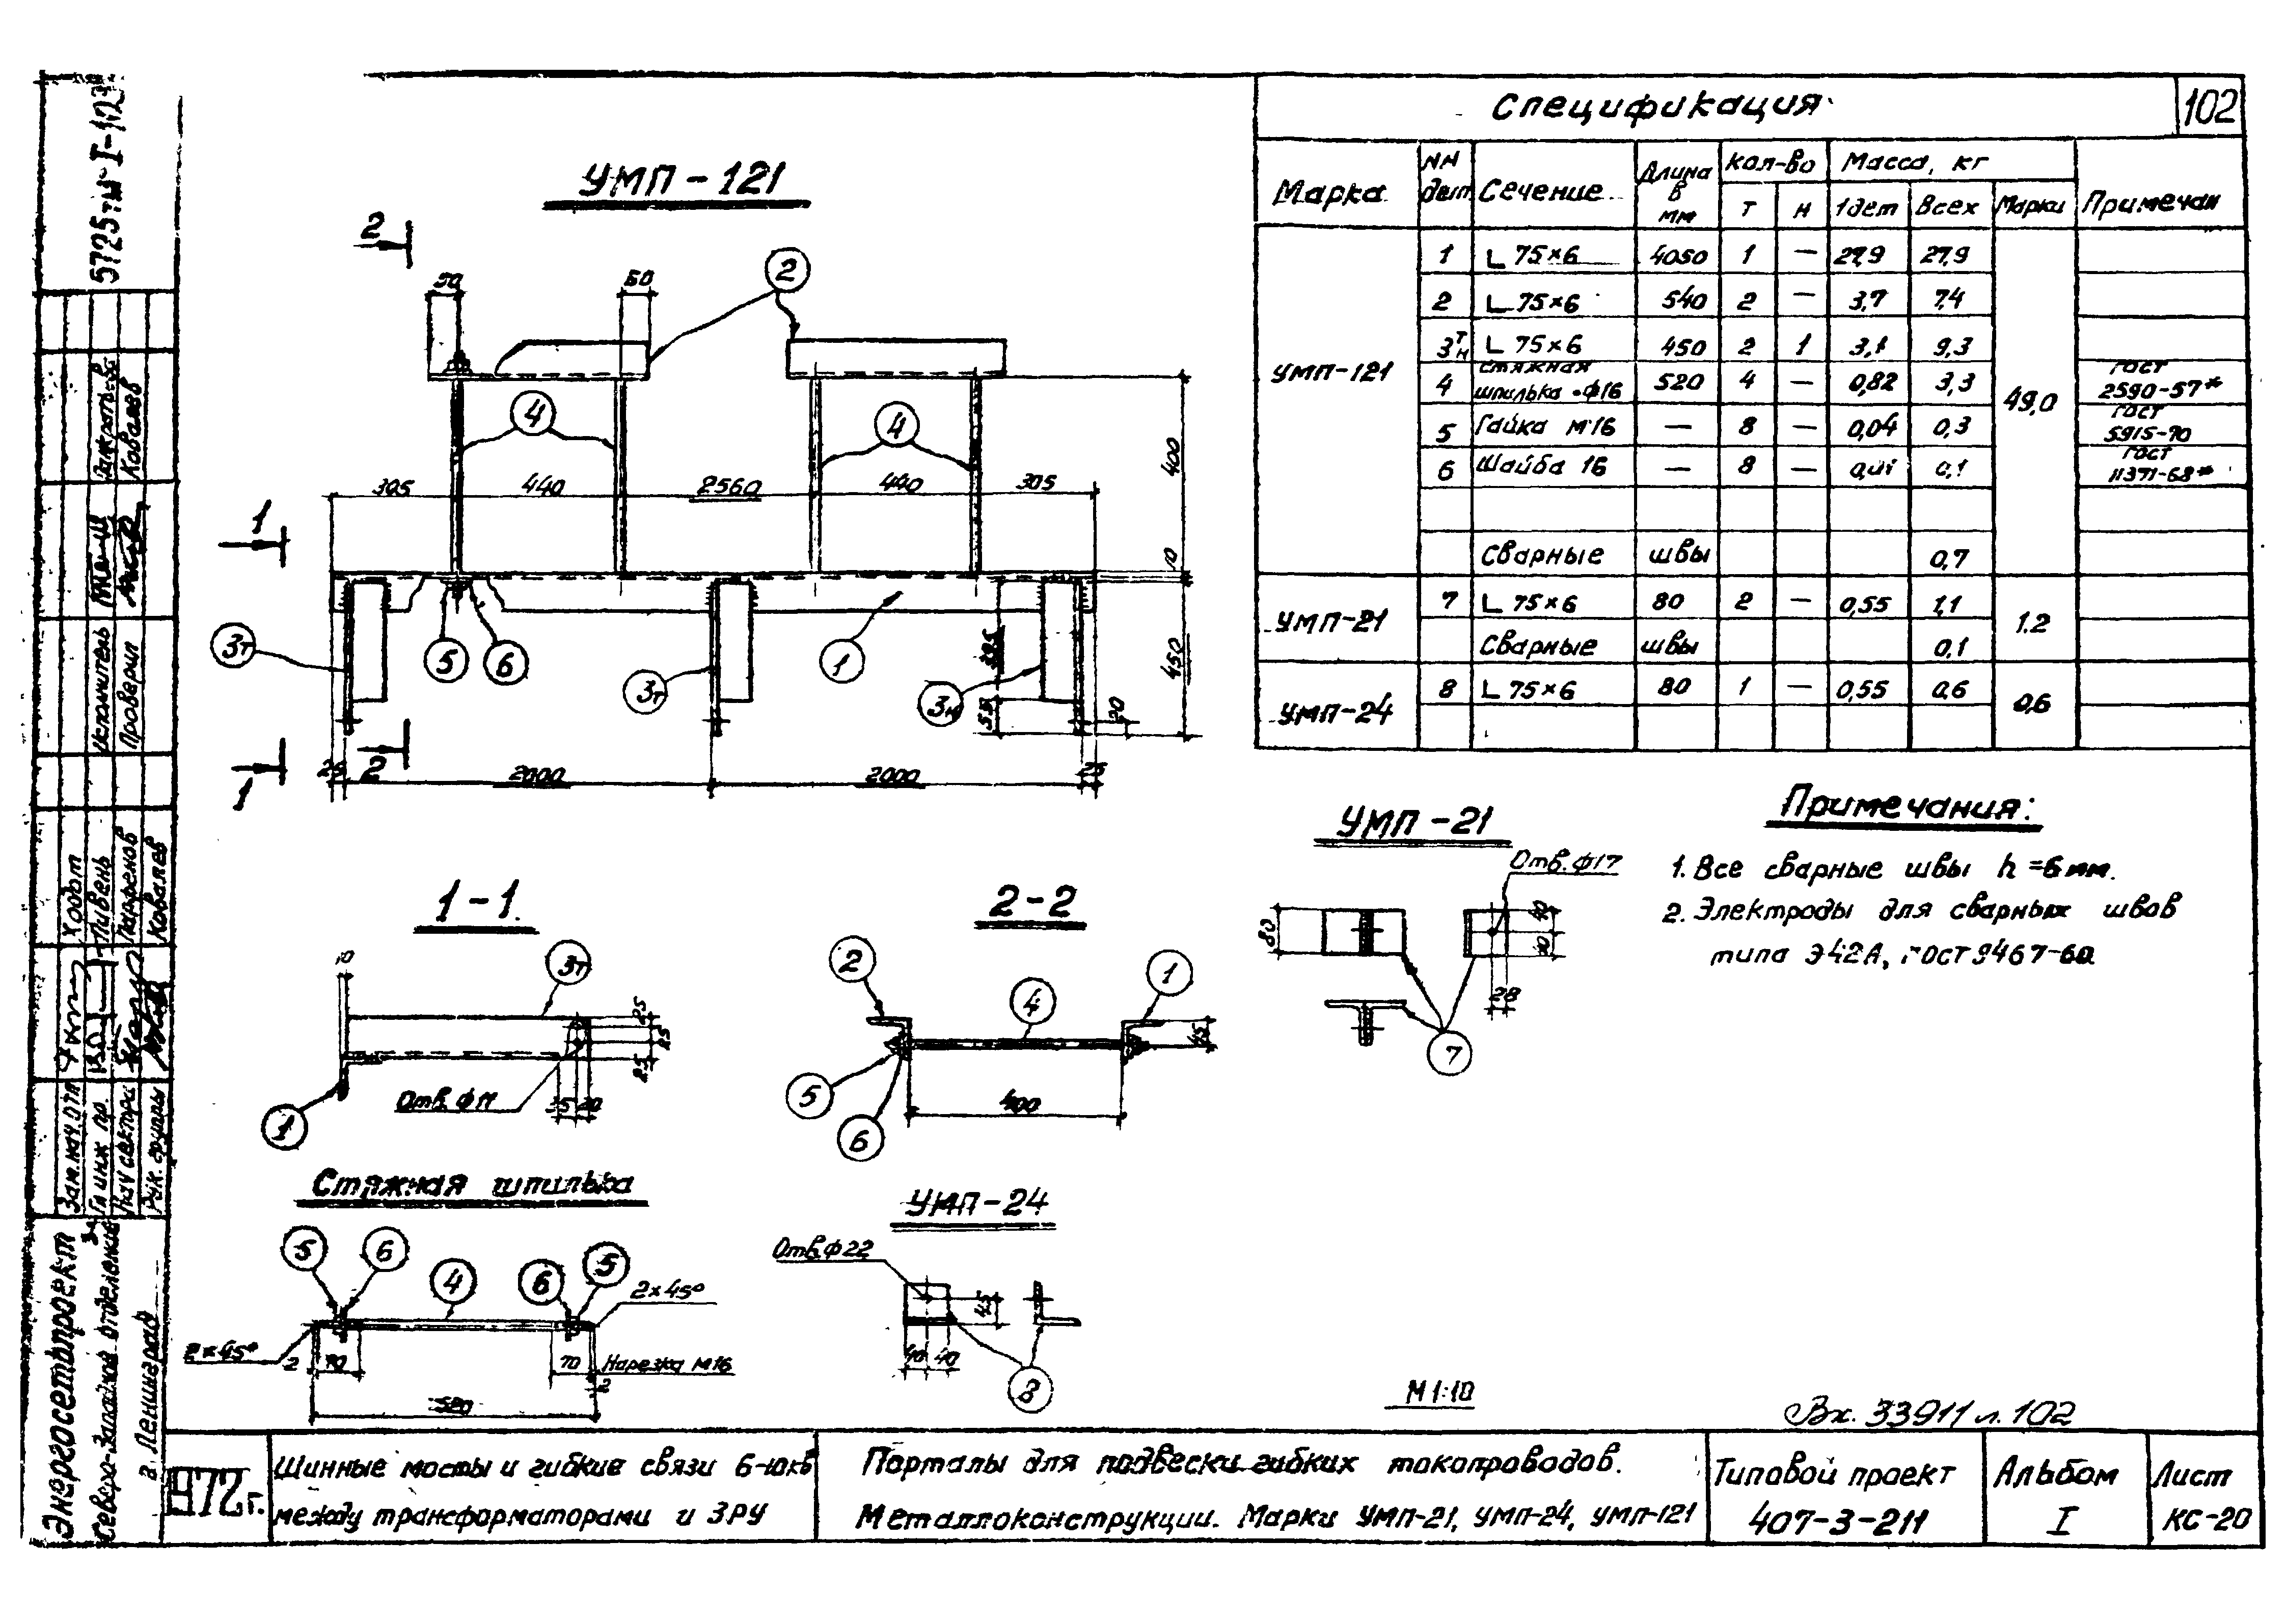 Спецификация
102
Марка
NN дет.
Сечение
Длина в мм
Кол-во
Масса, кг
Примечан
Т
Н
1 дет
Всех
Марки
УМП-121
1 L 75×6 4050 1 — 27,9 27,9
2 L 75×6 540 2 — 3,7 7,4
3 т н L 75×6 450 2 1 3,1 9,3
4 Стяжная шпилька ф16 520 4 — 0,82 3,3 ГОСТ 2590-57*
5 Гайка М16 — 8 — 0,04 0,3 ГОСТ 5915-70
6 Шайба 16 — 8 — 0,01 0,1 ГОСТ 11371-68*
49,0
Сварные швы 0,7
УМП-21
7 L 75×6 80 2 — 0,55 1,1
1.2
Сварные швы 0,1
УМП-24
8 L 75×6 80 1 — 0,55 0,6
0,6
УМП-121
2
50
50
2
4
4
400
305
440
2560
440
305
1
10
3т
5
6
3т
1
3н
395
55
20
450
1
25
2
2000
2000
25
1-1
10
3т
25
25
25
Отв. ф 17
35
20
1
2-2
2
4
1
45
5
6
400
УМП-21
Отв. ф17
80
40
40
28
7
Примечания:
1. Все сварные швы h = 6 мм.
2. Электроды для сварных швов
типа Э42А, ГОСТ 9467-60
Стяжная шпилька
5
6
4
6
5
2×45°
2×45°
2
70
70
Нарезка М16
2
520
УМП-24
Отв. ф 22
45
40
40
8
М 1:10
Вх. 33911 л. 102
972 г.
Шинные мосты и гибкие связи 6-10кв
между трансформаторами и ЗРУ
Порталы для подвески гибких токопроводов.
Металлоконструкции. Марки УМП-21, УМП-24, УМП-121
Типовой проект
407-3-211
Альбом
I
Лист
КС-20
5725тм-I-102
Ковалев
Исполнитель
Проверил
Ходот
Пивень
Парфенов
Ковалев
Зам.нач.отл
Гл инж пр.
Нач сектора
Рук. группы
Энергосетьпроект
Северо-Западное отделение
г. Ленинград